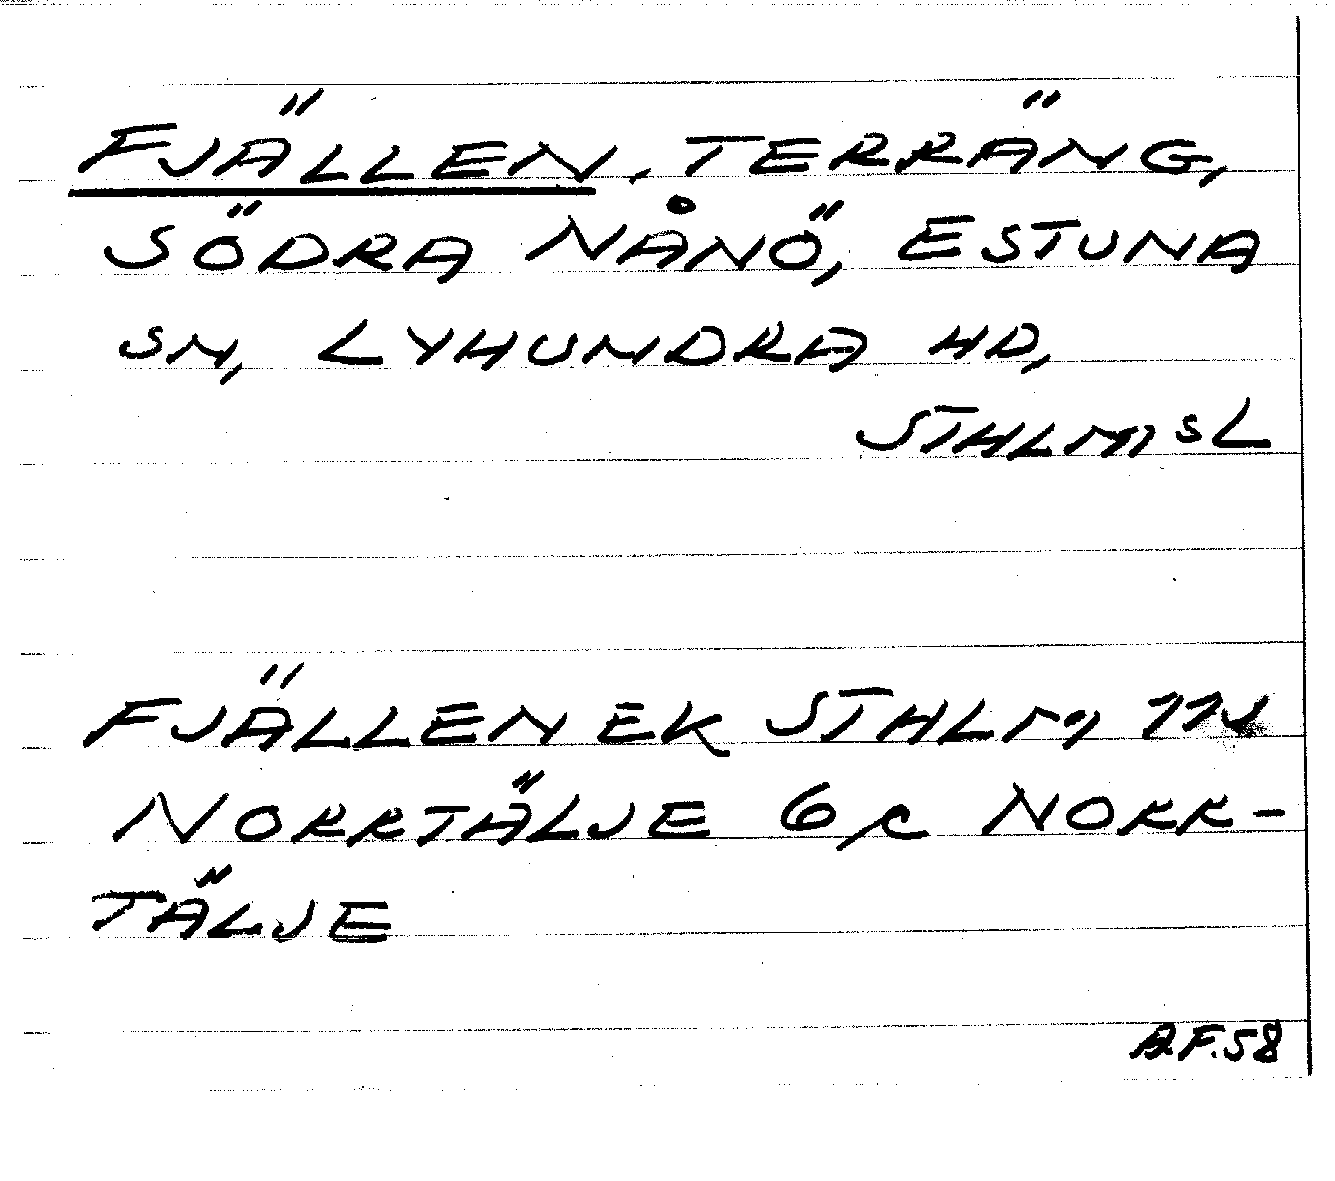 FJÄLLEN, TERRÄNG,
SÖDRA NÅNÖ, ESTUNA
SN, LYHUNDRA HD,
STHLMS L
FJÄLLEN EK STHLM
NORRTÄLJE 6 NORR-
TÄLJE
A.F.58